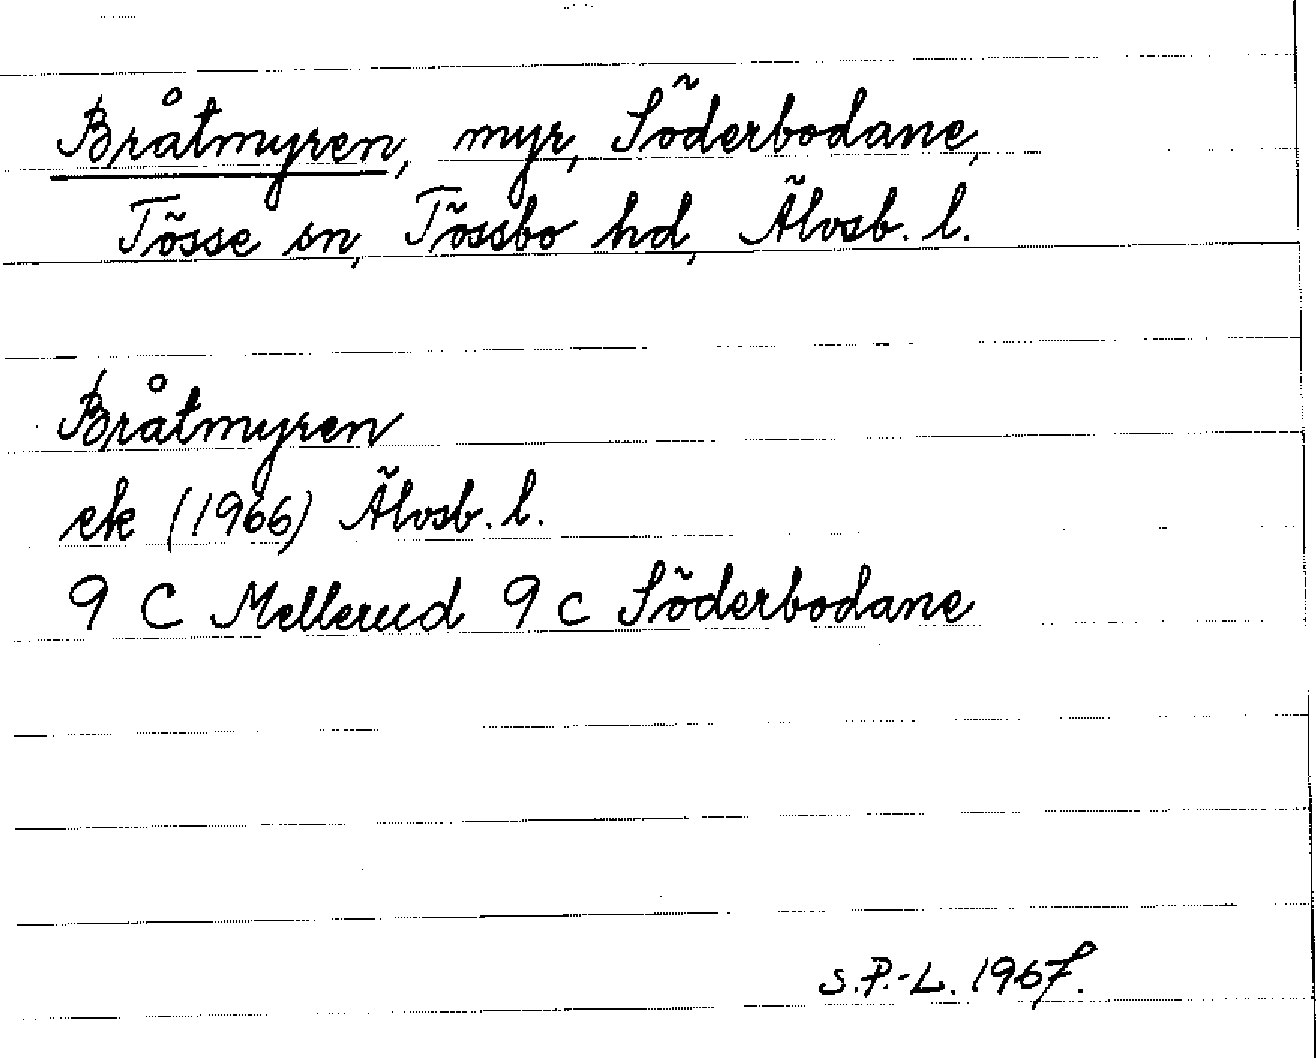 Bråtmyren, myr, Söderbodane,
Tösse sn, Tössbo hd, Älvsb. l.
Bråtmyren
ek (1966) Älvsb. l.
9 C Mellerud 9 c Söderbodane
S.P.-L. 1967.